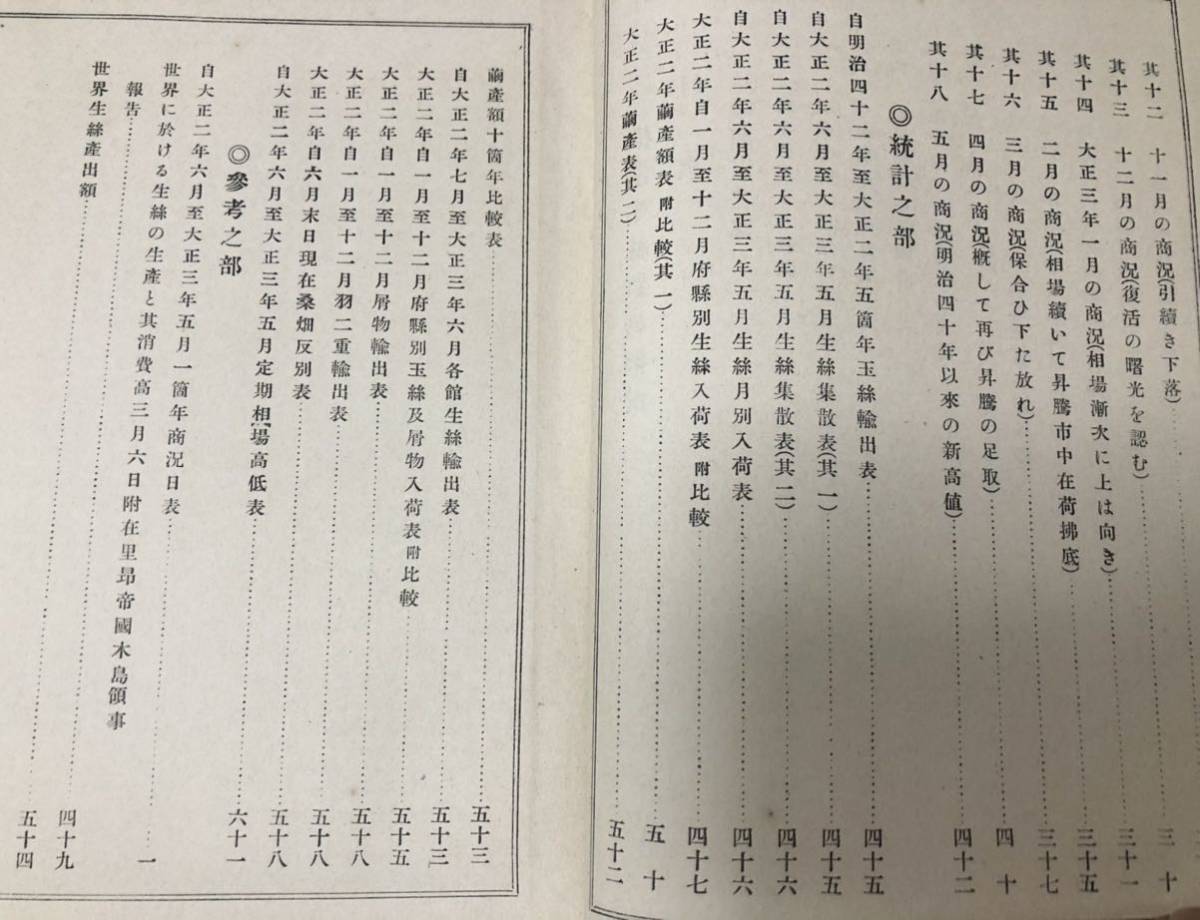 其十二　十一月の商況(引續き下落)
其十三　十二月の商況(復活の曙光を認む)……三十
其十四　大正三年一月の商況(相場漸次に上は向き)……三十一
其十五　二月の商況(相場續いて昇騰市中在荷拂底)……三十五
其十六　三月の商況(保合ひ下た放れ)……三十七
其十七　四月の商況(概して再び昇騰の足取)……四十
其十八　五月の商況(明治四十年以來の新高値)……四十二
◎統計之部
自明治四十二年至大正二年五箇年玉絲輸出表……四十五
自大正二年六月至大正三年五月生絲集散表(其一)……四十五
自大正二年六月至大正三年五月生絲集散表(其二)……四十六
自大正二年六月至大正三年五月生絲月別入荷表……四十六
大正二年自一月至十二月府縣別生絲入荷表附比較……四十七
大正二年繭產額表附比較(其一)……五十
大正二年繭產表(其二)……五十二
繭產額十箇年比較表……五十三
自大正二年七月至大正三年六月各館生絲輸出表……五十三
大正二年自一月至十二月府縣別玉絲及屑物入荷表附比較……五十五
大正二年自一月至十二月屑物輸出表……五十八
大正二年自一月至十二月羽二重輸出表……五十八
大正二年自六月末日現在桑畑反別表……五十八
自大正二年六月至大正三年五月定期相場高低表……六十一
◎參考之部
自大正二年六月至大正三年五月一箇年商況日表……一
世界に於ける生絲の生產と其消費高三月六日附在里昂帝國木島領事
報告……四十九
世界生絲產出額……五十四